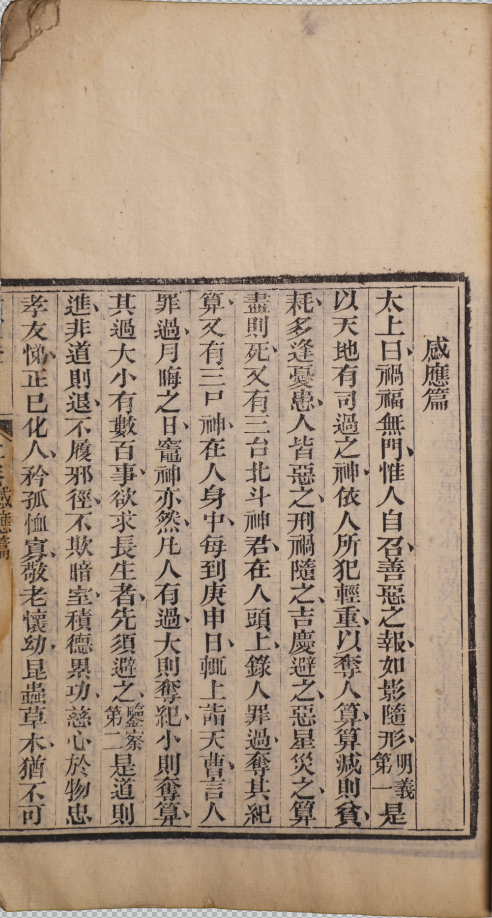 感應篇
太上曰禍福無門惟人自召善惡之報如影隨形明義第一是
以天地有司過之神依人所犯輕重以奪人算算減則貧
耗多逢憂患人皆惡之刑禍隨之吉慶避之惡星災之算
盡則死又有三台北斗神君在人頭上錄人罪過奪其紀
算又有三尸神在人身中每到庚申日輒上詣天曹言人
罪過月晦之日竈神亦然凡人有過大則奪紀小則奪算
其過大小有數百事欲求長生者先須避之鑒察第二是道則
進非道則退不履邪徑不欺暗室積德累功慈心於物忠
孝友悌正己化人矜孤恤寡敬老懷幼昆蟲草木猶不可
感應篇